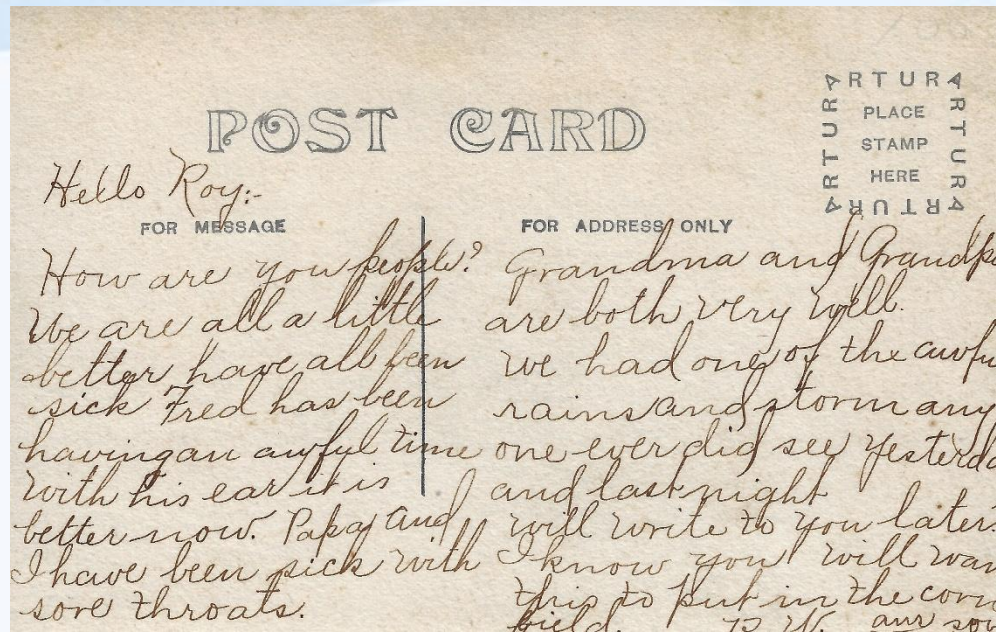 POST CARD
ARTURA
ARTURA
ARTURA
ARTURA
PLACE
STAMP
HERE
Hello Roy:-
FOR MESSAGE
How are you people?
We are all a little
better have all been
sick Fred has been
having an awful time
with his ear it is
better now. Papa and
I have been sick with
sore throats.
FOR ADDRESS ONLY
Grandma and Grandpa
are both very well.
We had one of the awfu
rains and storm any
one ever did see yesterda
and last night
will write to you later.
I know you will wan
this to put in the corn
field.